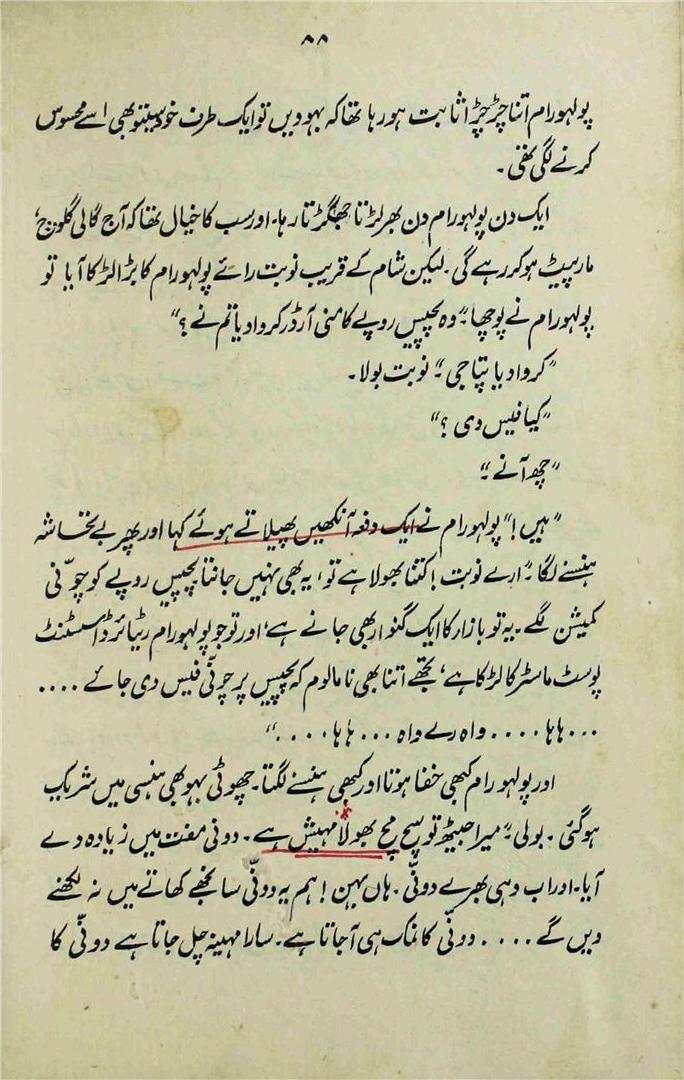 ۸۸
پولہورام اتنا چڑچڑا ثابت ہو رہا تھا کہ بہوویں تو ایک طرف خود سبنتو بھی اسے محسوس
کرنے لگی تھی۔
ایک دن پولہورام دن بھر لڑتا جھگڑتا رہا۔ اور سب کا خیال تھا کہ آج گالی گلوچ،
مار پیٹ ہو کر رہے گی۔ لیکن شام کے قریب نوبت رائے پولہورام کا بڑا لڑکا آیا تو
پولہورام نے پوچھا۔ "وہ پچیس روپے کا منی آرڈر کروا دیا تم نے؟"
"کروا دیا پتا جی۔" نوبت بولا۔
"کیا فیس دی؟"
"چھ آنے۔"
"ہیں!" پولہورام نے ایک دفعہ آنکھیں پھیلاتے ہوئے کہا اور پھر بے تحاشہ
ہنسنے لگا۔ "ارے نوبت! کتنا بھولا ہے تو، یہ بھی نہیں جانتا پچیس روپے کو چوّنی
کمیشن لگے۔ یہ تو بازار کا ایک گنوار بھی جانے ہے، اور تو جو پولہورام ریٹائرڈ اسسٹنٹ
پوسٹ ماسٹر کا لڑکا ہے، تجھے اتنا بھی نا مالوم کہ پچیس پر چونّی فیس دی جائے ....
... ہاہا .... واہ رے واہ ... ہاہا ...."
اور پولہورام کبھی خفا ہوتا اور کبھی ہنسنے لگتا۔ چھوٹی بہو بھی ہنسی میں شریک
ہوگئی۔ بولی۔ "میرا جیٹھ تو سچ مچ بھولا مہیش ہے۔ دونی مفت میں زیادہ دے
آیا۔ اور اب دہی بھرے دونّی۔ ہاں بہن! ہم یہ دونّی سانجھے کھاتے میں نہ لکھنے
دیں گے .... دونّی کا نمک ہی آجاتا ہے۔ سارا مہینہ چل جاتا ہے دونّی کا